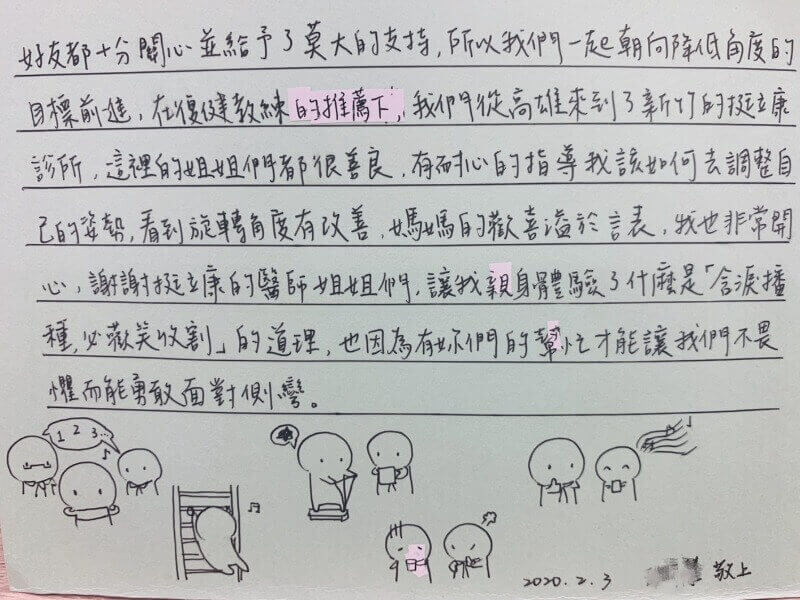 好友都十分關心並給予了莫大的支持,所以我們一起朝向降低角度的
目標前進,在復健教練的推薦下,我們從高雄來到了新竹的挺立康
診所,這裡的姐姐們都很善良,有耐心的指導我該如何去調整自
己的姿勢,看到旋轉角度有改善,媽媽的歡喜溢於言表,我也非常開
心,謝謝挺立康的醫師姐姐們,讓我親身體驗了什麼是「含淚播
種,必歡笑收割」的道理,也因為有妳們的幫忙才能讓我們不畏
懼而能勇敢面對側彎。
1 2 3...
2020.2.3 敬上